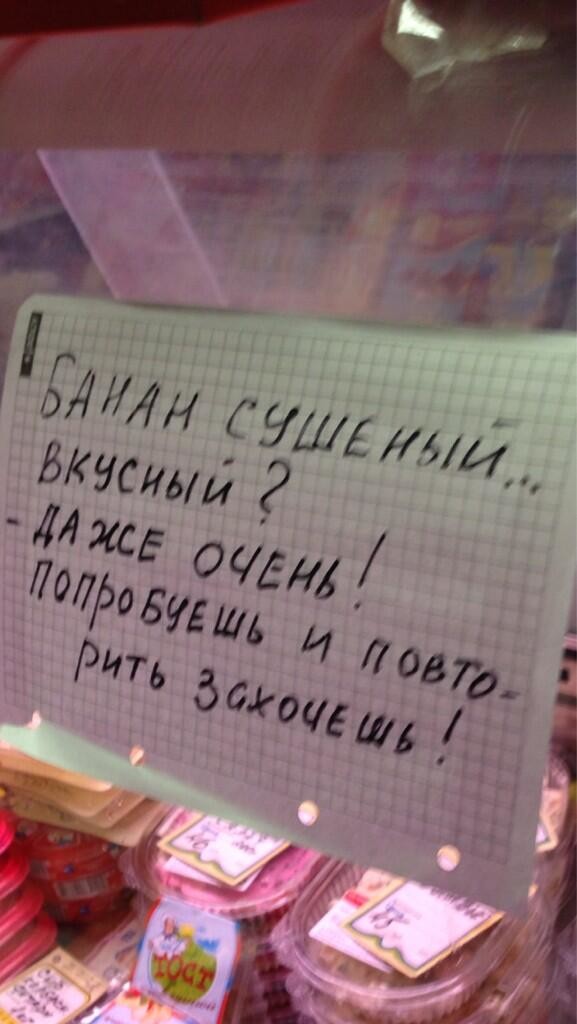 БАНАН СУШЕНЫЙ...
ВКУСНЫЙ?
- ДАЖЕ ОЧЕНЬ!
ПОПРОБУЕШЬ И ПОВТО-
РИТЬ ЗАХОЧЕШЬ!
ТОСТ